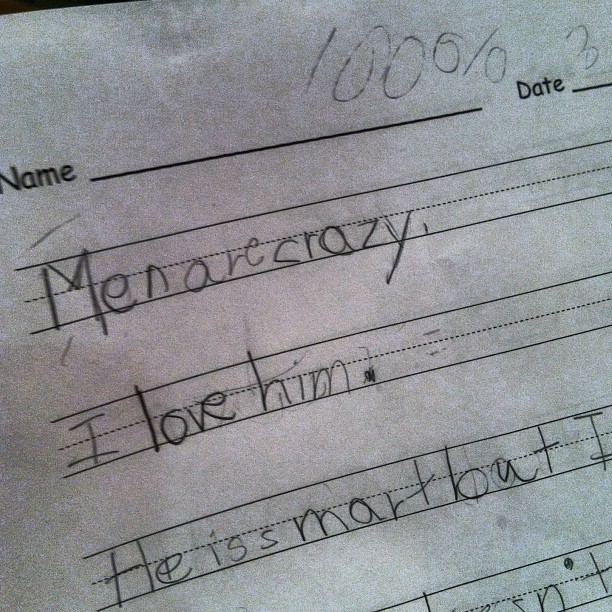 100%
Name Date 3
Men are crazy.
I love him.
He is smart bat I